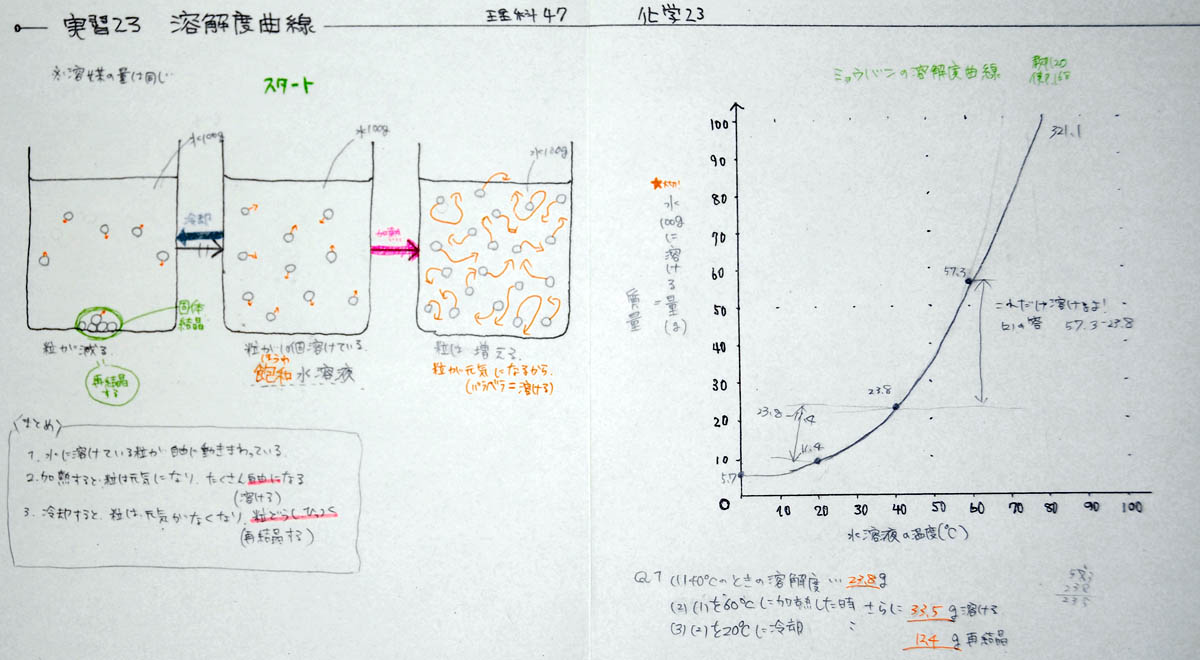 実習23 溶解度曲線
理科47
化学23
※溶媒の量は同じ
スタート
水100g
水100g
水100g
冷却
加熱
固体
結晶
粒が減る
再結晶
する
粒が10個溶けている
ほうわ
飽和水溶液
粒は増える
粒が元気になるから
(バラバラ=溶ける)
〈まとめ〉
1. 水に溶けている粒が自由に動きまわっている。
2. 加熱すると粒は元気になり、たくさん自由になる
(溶ける)
3. 冷却すると、粒は元気がなくなり、粒どうしひっつく
(再結晶する)
ミョウバンの溶解度曲線
★大切!
水100gに溶ける量(g)
質量
100
90
80
70
60
50
40
30
20
10
0
10 20 30 40 50 60 70 80 90 100
水溶液の温度(℃)
321.1
57.3
23.8
11.4
5.7
23.8-11.4
これだけ溶けるよ!
57.3-23.8
Q1 (1) 40℃のときの溶解度… 23.8g
(2) (1)を60℃に加熱した時 さらに 33.5 g溶ける
(3) (2)を20℃に冷却 : 12.4 g再結晶